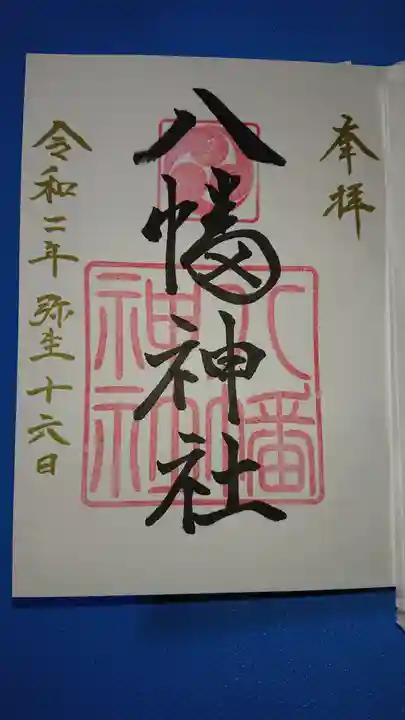 奉拝
八幡神社
八幡
神社
令和二年 弥生十六日